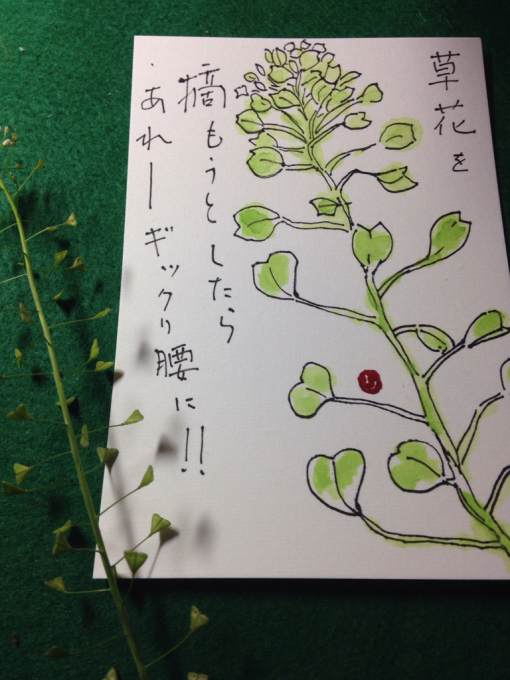 草花を
摘もうとしたら
あれーギックリ腰に!!